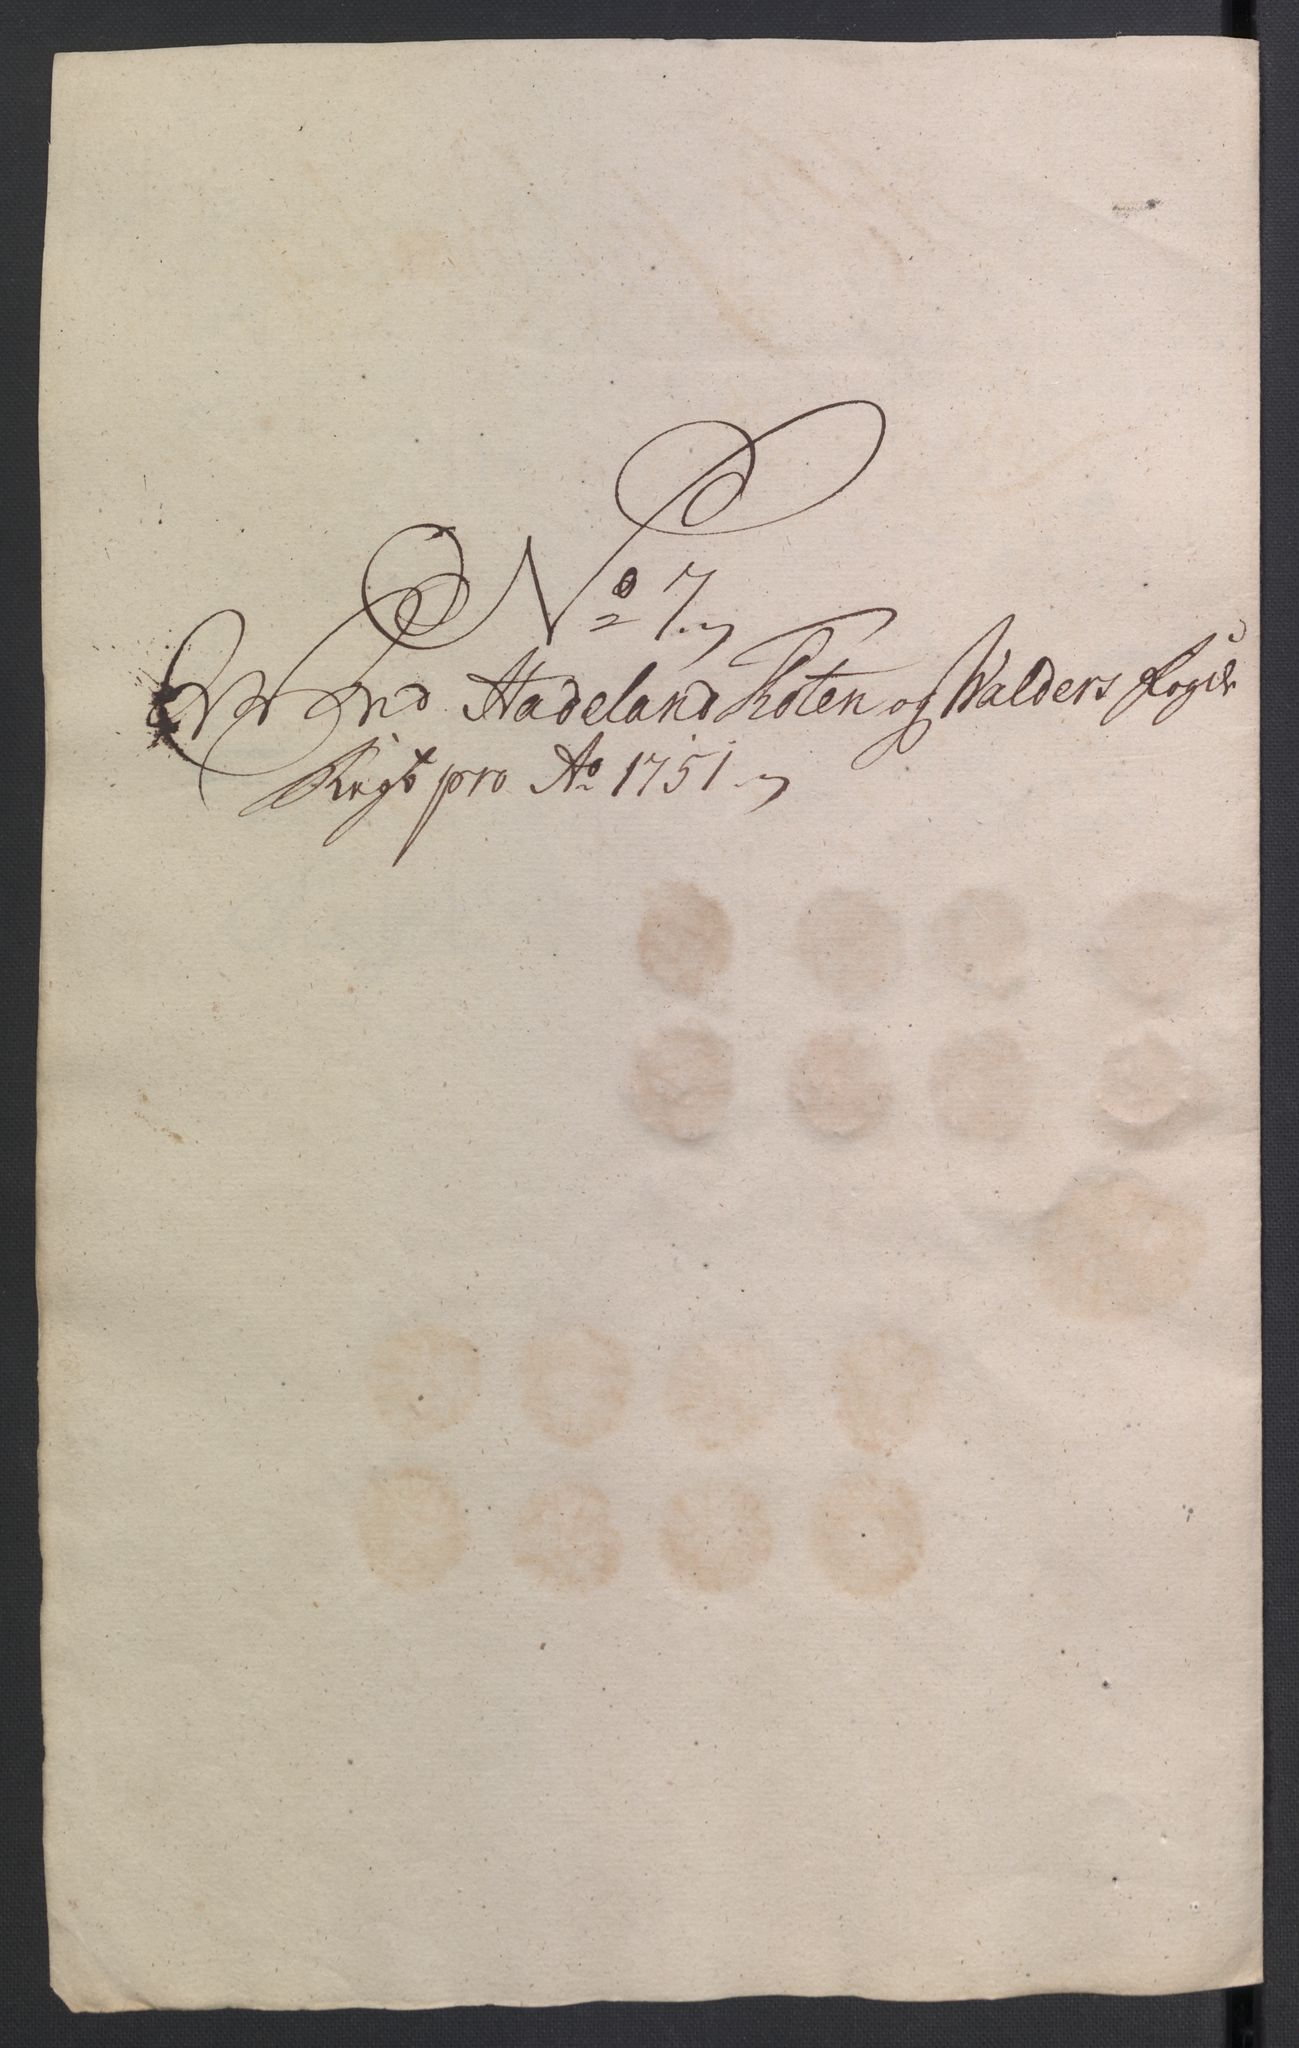 No 7.
Ved Hadeland Toten og Walders Fogde
Regsk pro Ao 1751.